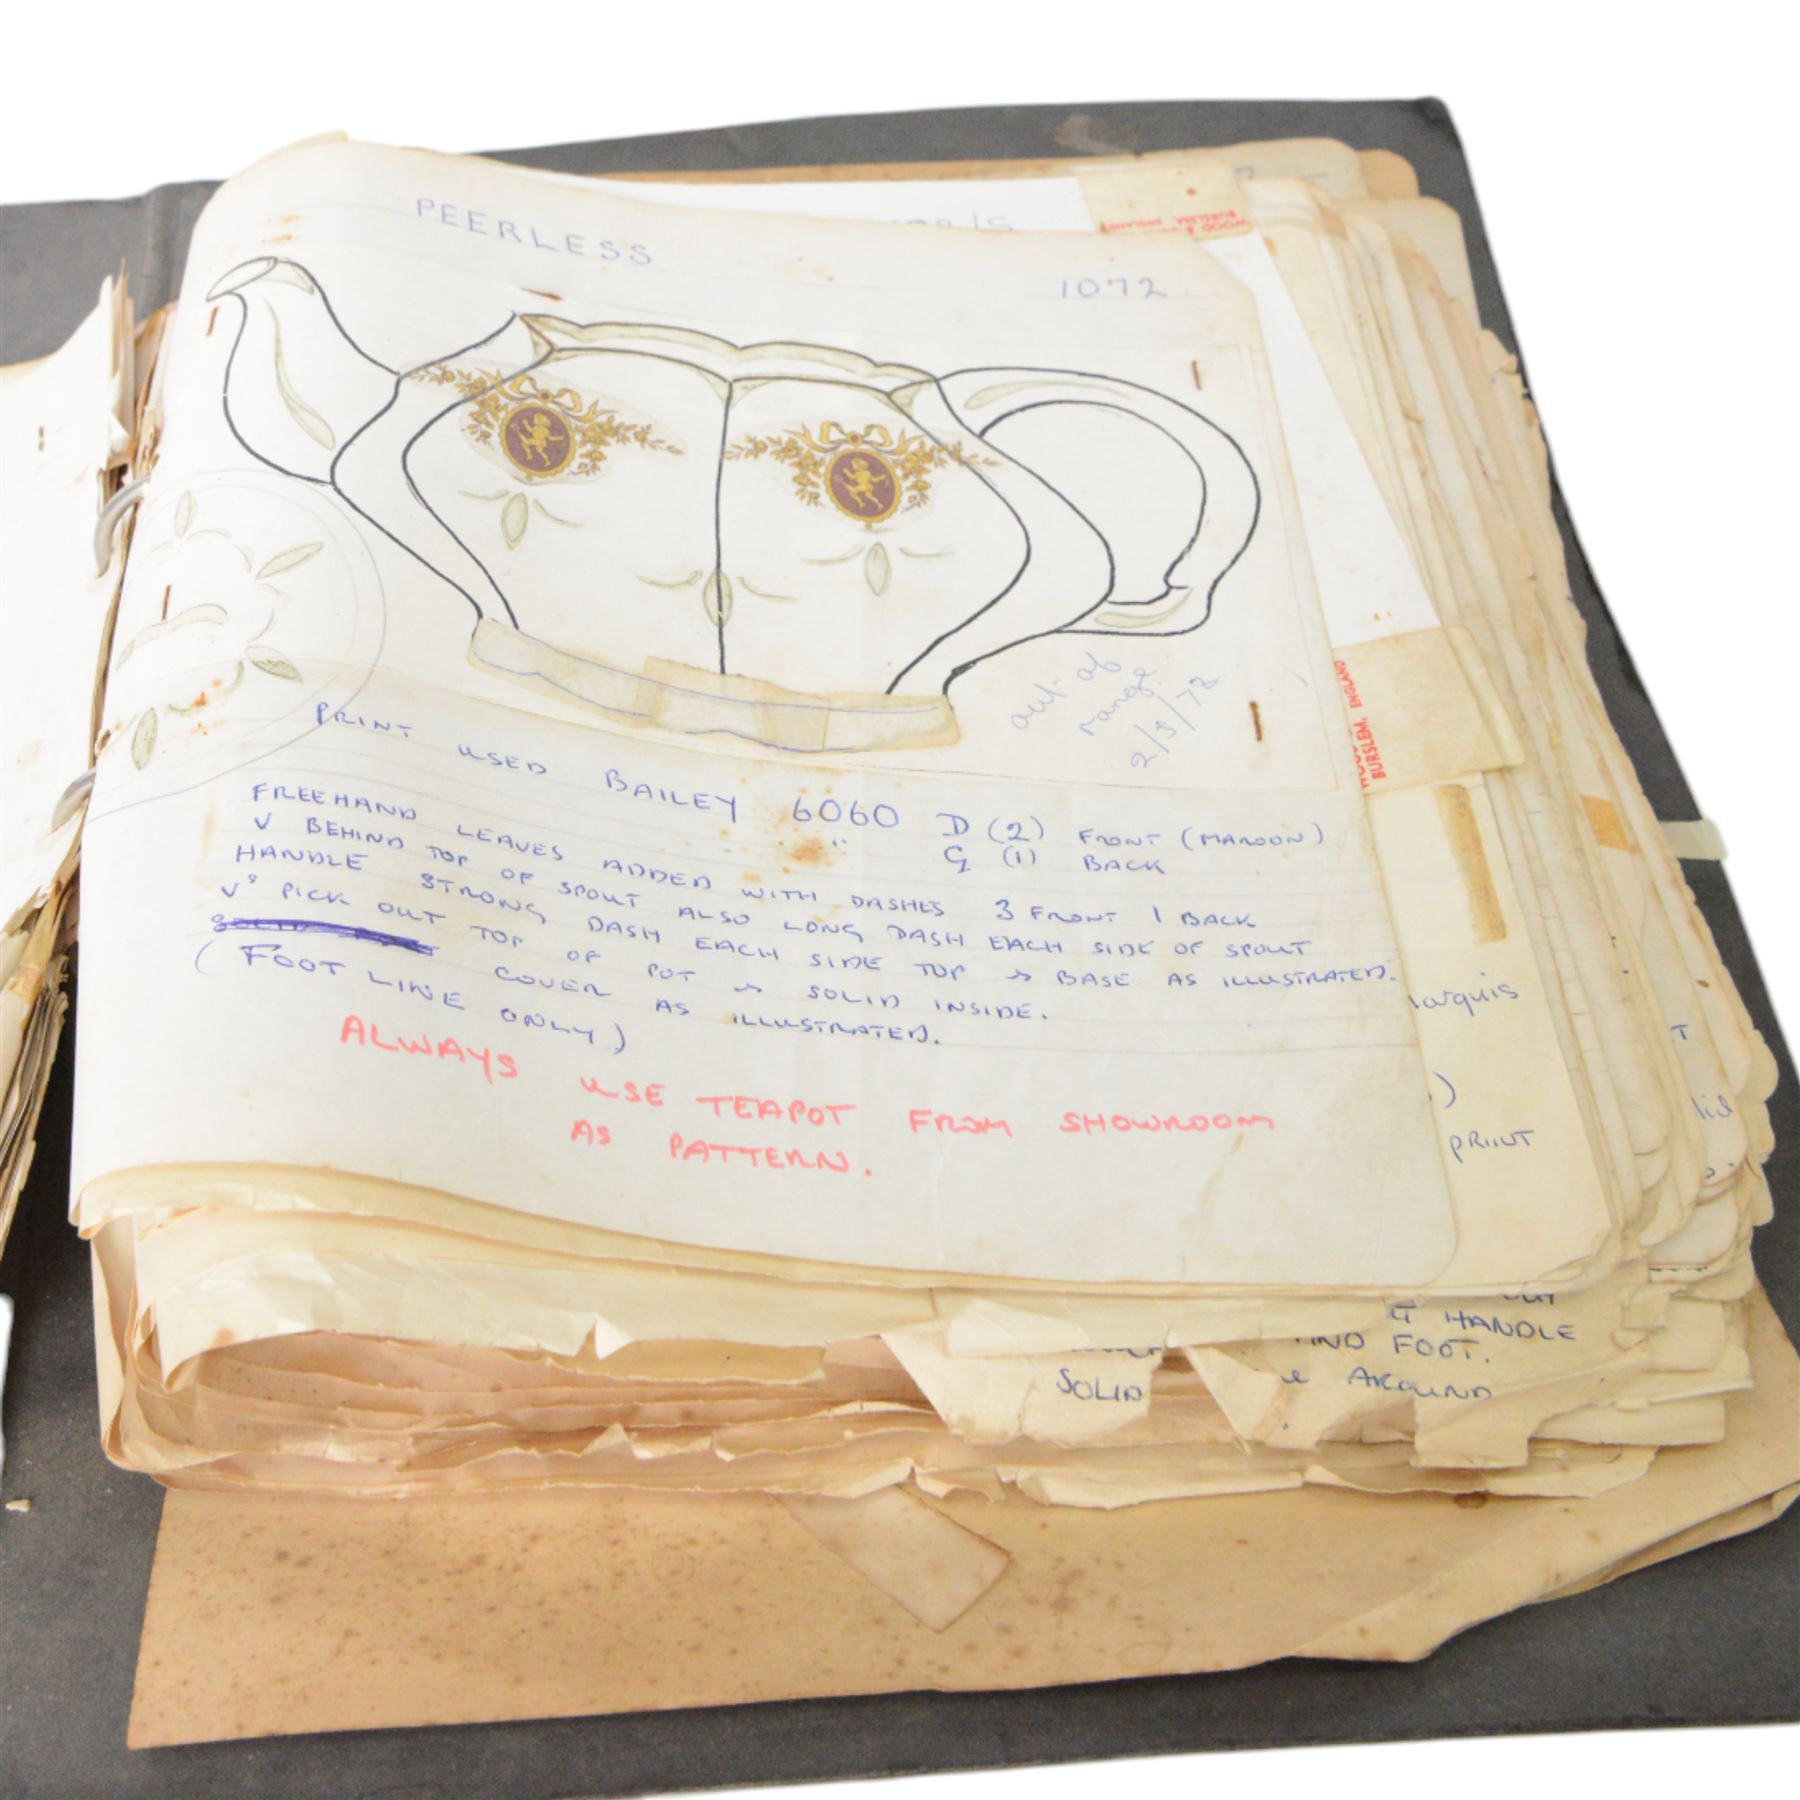 PEERLESS
1072.
out of
range
2/5/78
PRINT USED BAILEY 6060 D (2) FRONT (MAROON)
" G (1) BACK
FREEHAND LEAVES ADDED WITH DASHES 3 FRONT 1 BACK
V BEHIND TOP OF SPOUT ALSO LONG DASH EACH SIDE OF SPOUT
HANDLE STRONG DASH EACH SIDE TOP & BASE AS ILLUSTRATED.
Vs PICK OUT TOP OF POT & SOLID INSIDE.
COVER AS ILLUSTRATED.
(FOOT LINE ONLY)
ALWAYS USE TEAPOT FROM SHOWROOM
AS PATTERN.
WOOD &
BURSLEM, ENGLAND
BURSLEM, ENGLAND
PRINT
HANDLE
FOOT.
SOLID
AROUND